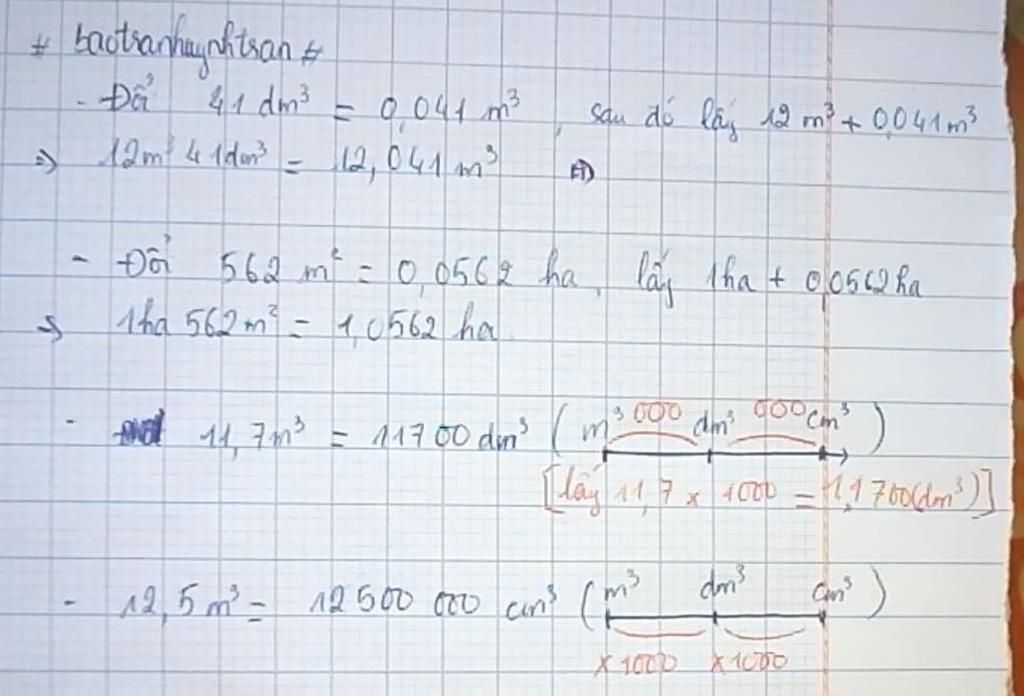 # baotranhuynhtran #
- Đổi 41 dm³ = 0,041 m³, sau đó lấy 12 m³ + 0,041 m³
⇒ 12m³ 41dm³ = 12,041 m³
- Đổi 562 m² = 0,0562 ha, lấy 1ha + 0,0562 ha
⇒ 1ha 562m² = 1,0562 ha
- 11,7m³ = 11700 dm³ ( m³ 000 dm³ 000 cm³ )
[lấy 11,7 x 1000 = 11700(dm³)]
- 12,5 m³ = 12500 000 cm³ ( m³ dm³ cm³ )
x 1000 x 1000